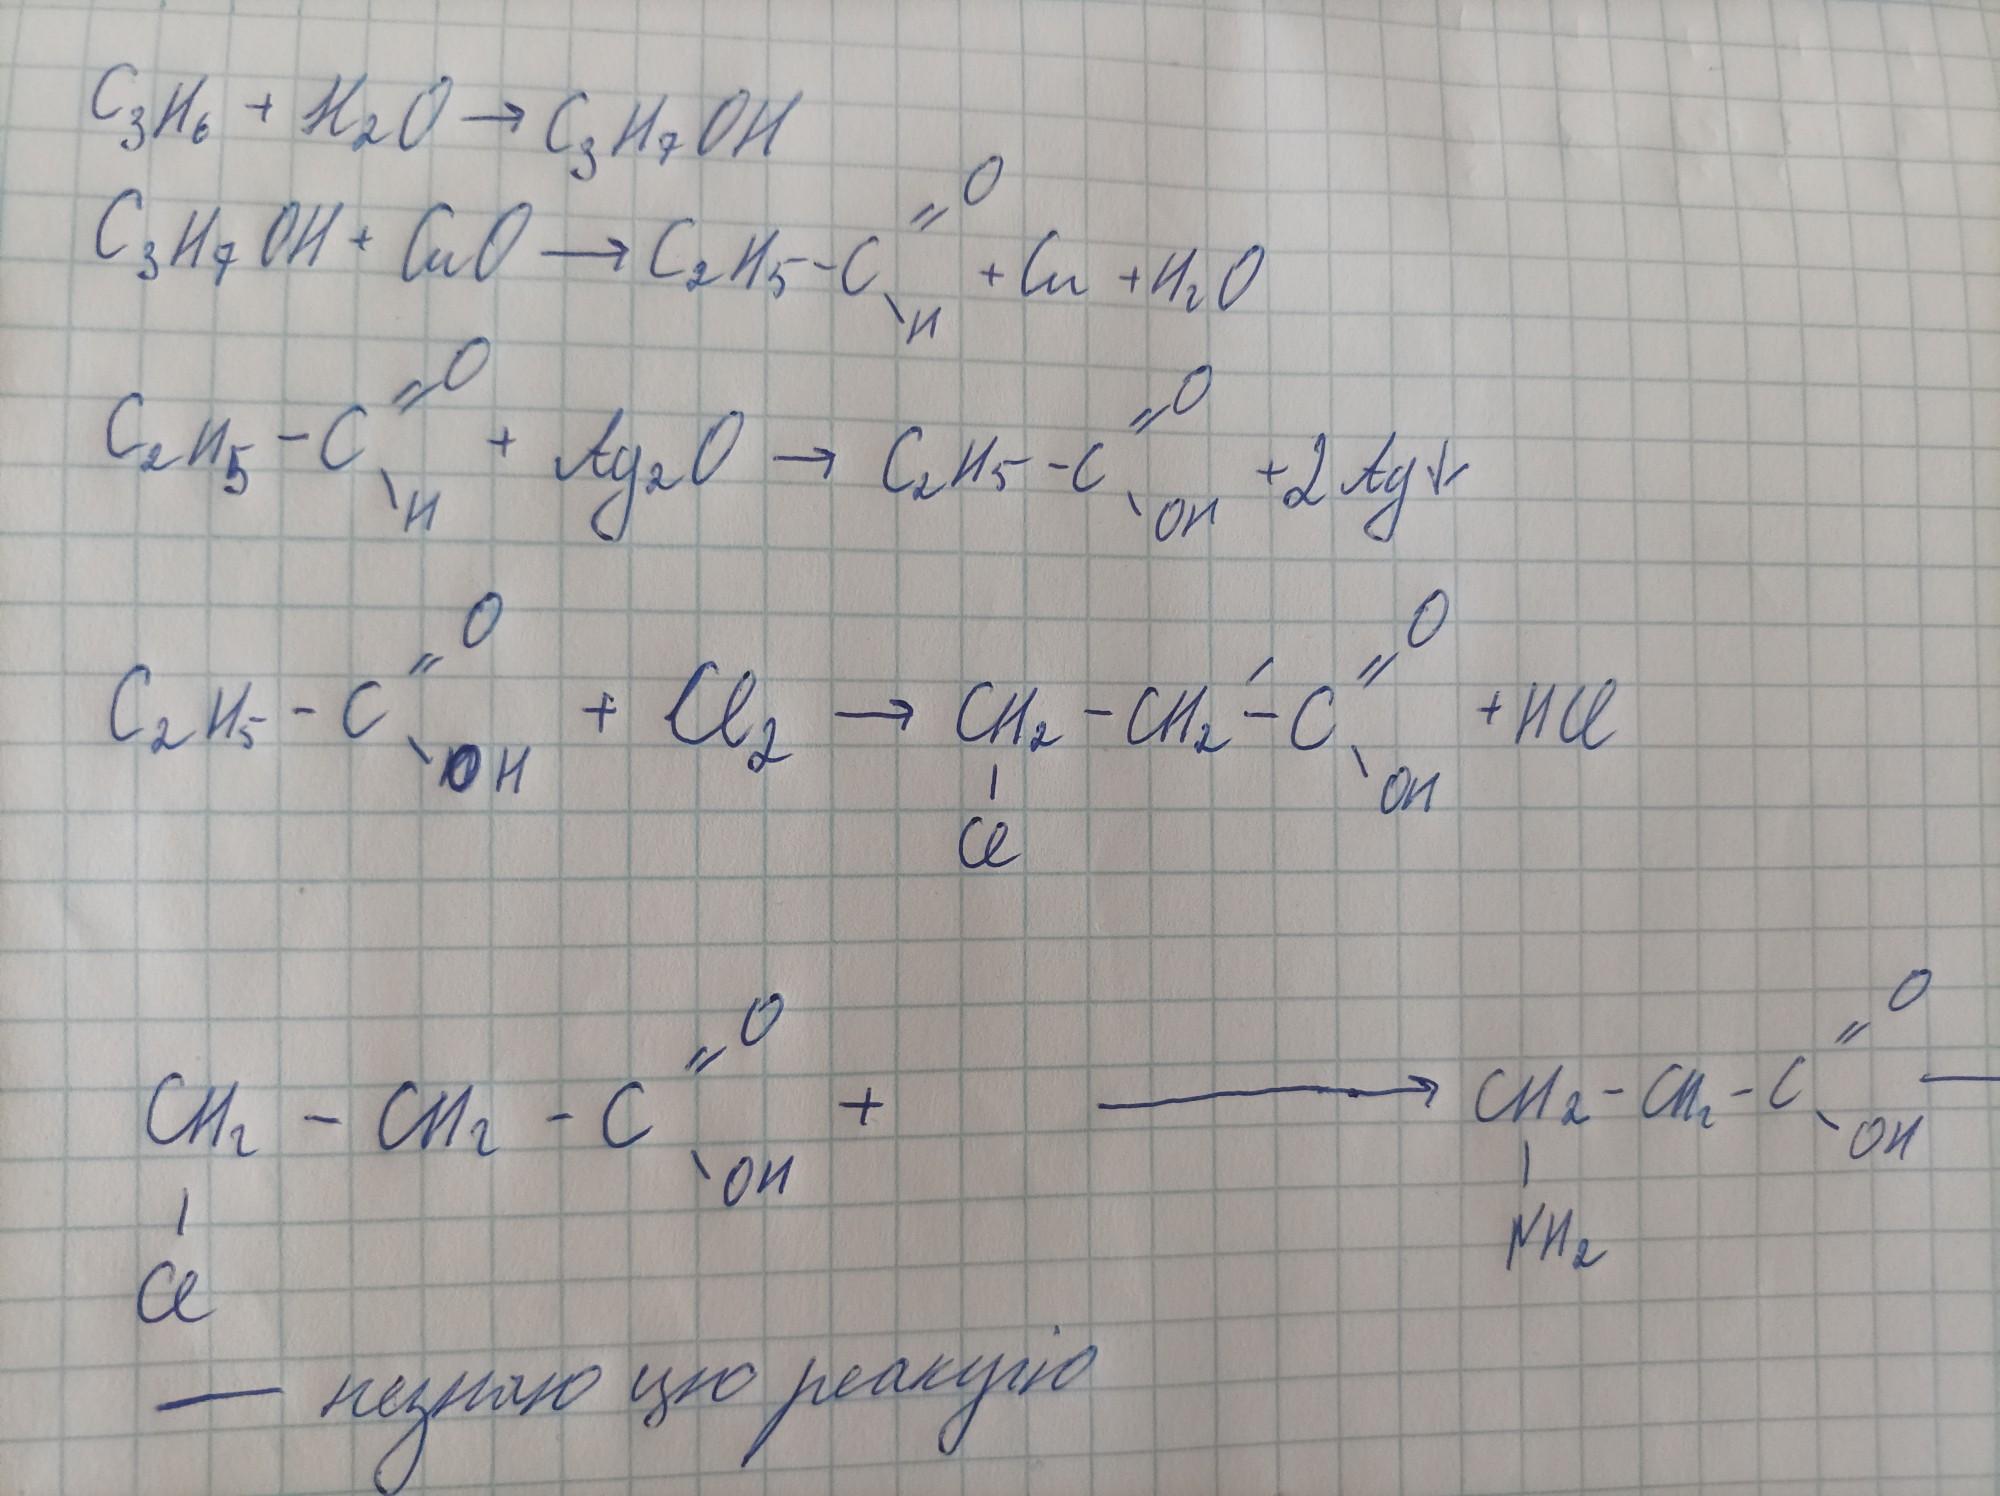 C₃H₆ + H₂O → C₃H₇OH
C₃H₇OH + CuO → C₂H₅-C=O\H + Cu + H₂O
C₂H₅-C=O\H + Ag₂O → C₂H₅-C=O\OH + 2Ag↓
C₂H₅-C=O\OH + Cl₂ → CH₂-CH₂-C=O\OH + HCl
Cl
CH₂ - CH₂ - C=O\OH + → CH₂-CH₂-C=O\OH —
Cl NH₂
— незнаю цю реакцію